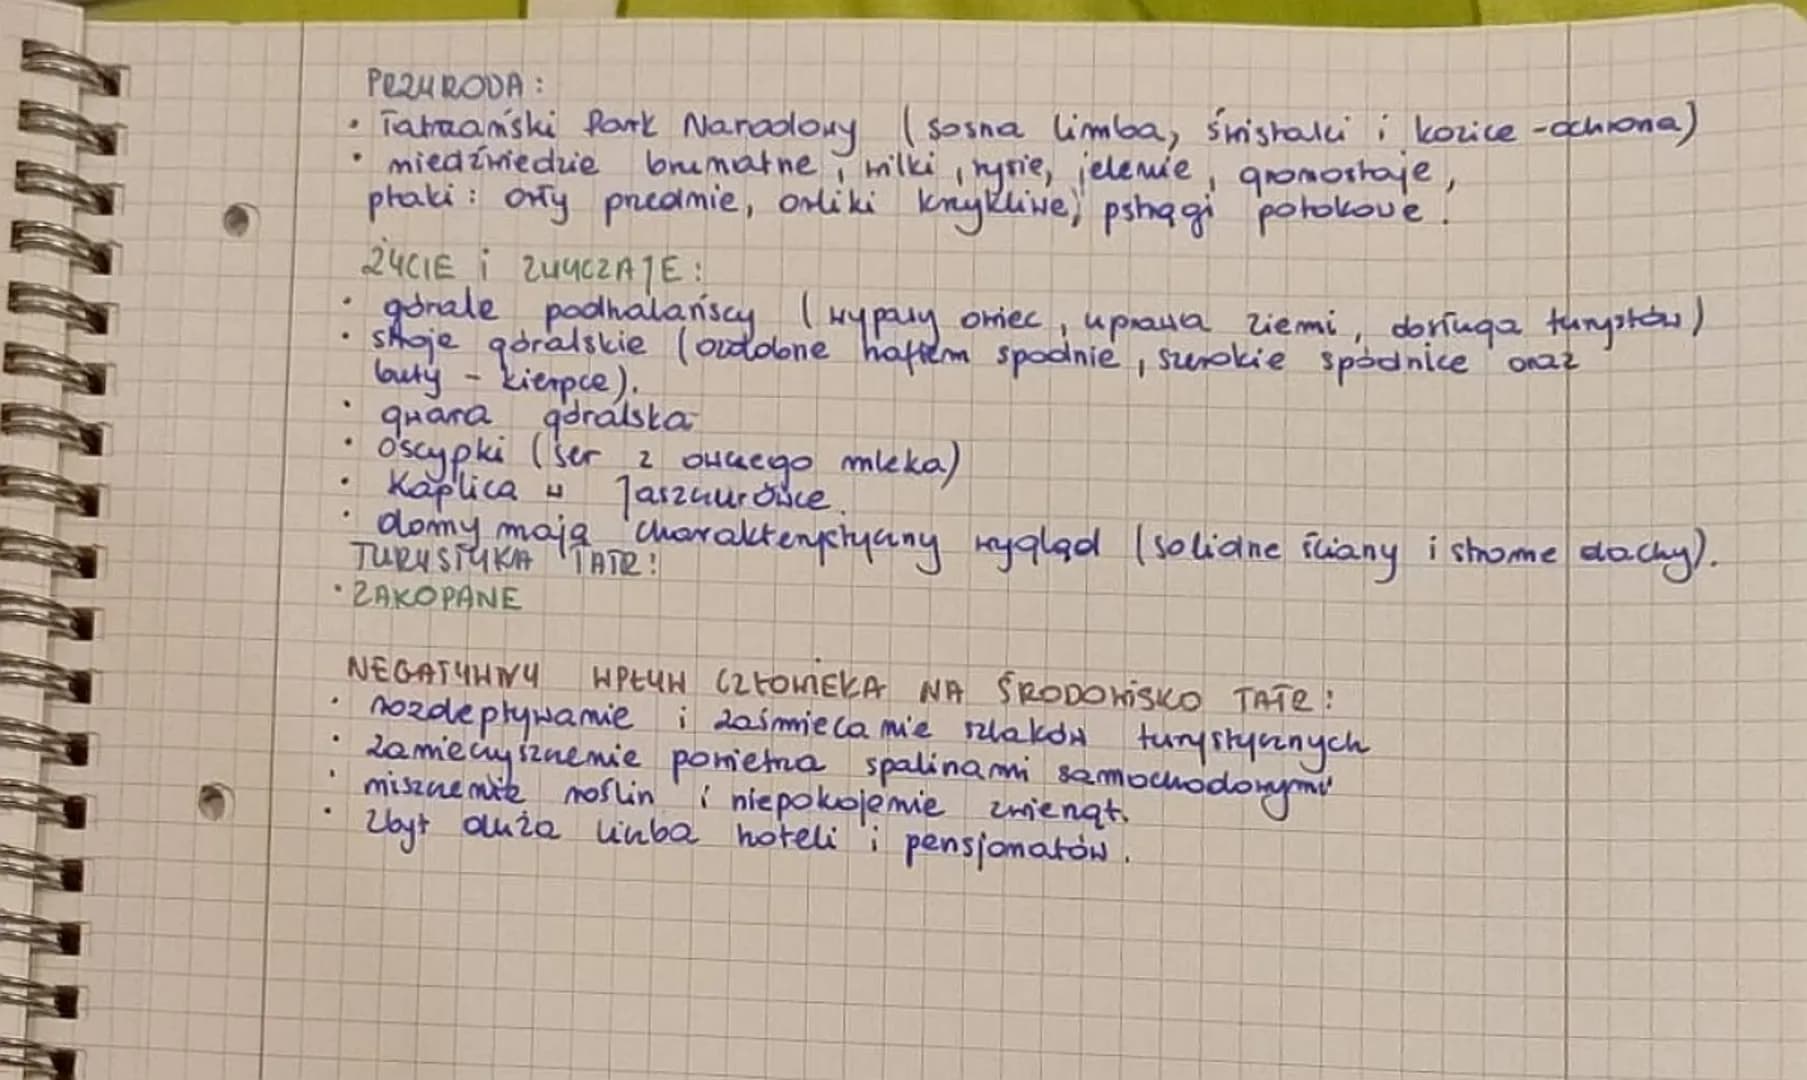 PRZYRODA:
• Tatrzański Park Narodowy (sosna limba, świstaki i kozice - ochrona)
• niedźwiedzie brunatne, wilki, rysie, jelenie, gronostaje,
ptaki: orły przednie, orliki krzykliwe, pstrągi potokowe.
ŻYCIE i ZWYCZAJE:
• górale podhalańscy (wypasy owiec, uprawa ziemi, dosługa turystów)
• stroje góralskie (ozdobne haftem spodnie, szerokie spódnice oraz
buty - kierpce).
• gwara góralska
• oscypki (ser z owczego mleka)
• Kaplica w Jaszczurówce.
• domy mają charakterystyczny wygląd (solidne ściany i strome dachy).
TURYSTYKA TATR:
• ZAKOPANE
NEGATYWNY WPŁYW CZŁOWIEKA NA ŚRODOWISKO TATR:
• rozdeptywanie i zaśmiecanie szlaków turystycznych
• zanieczyszczenie powietrza spalinami samochodowymi
• niszczenie roślin i niepokojenie zwierząt.
• zbyt duża liczba hoteli i pensjonatów.